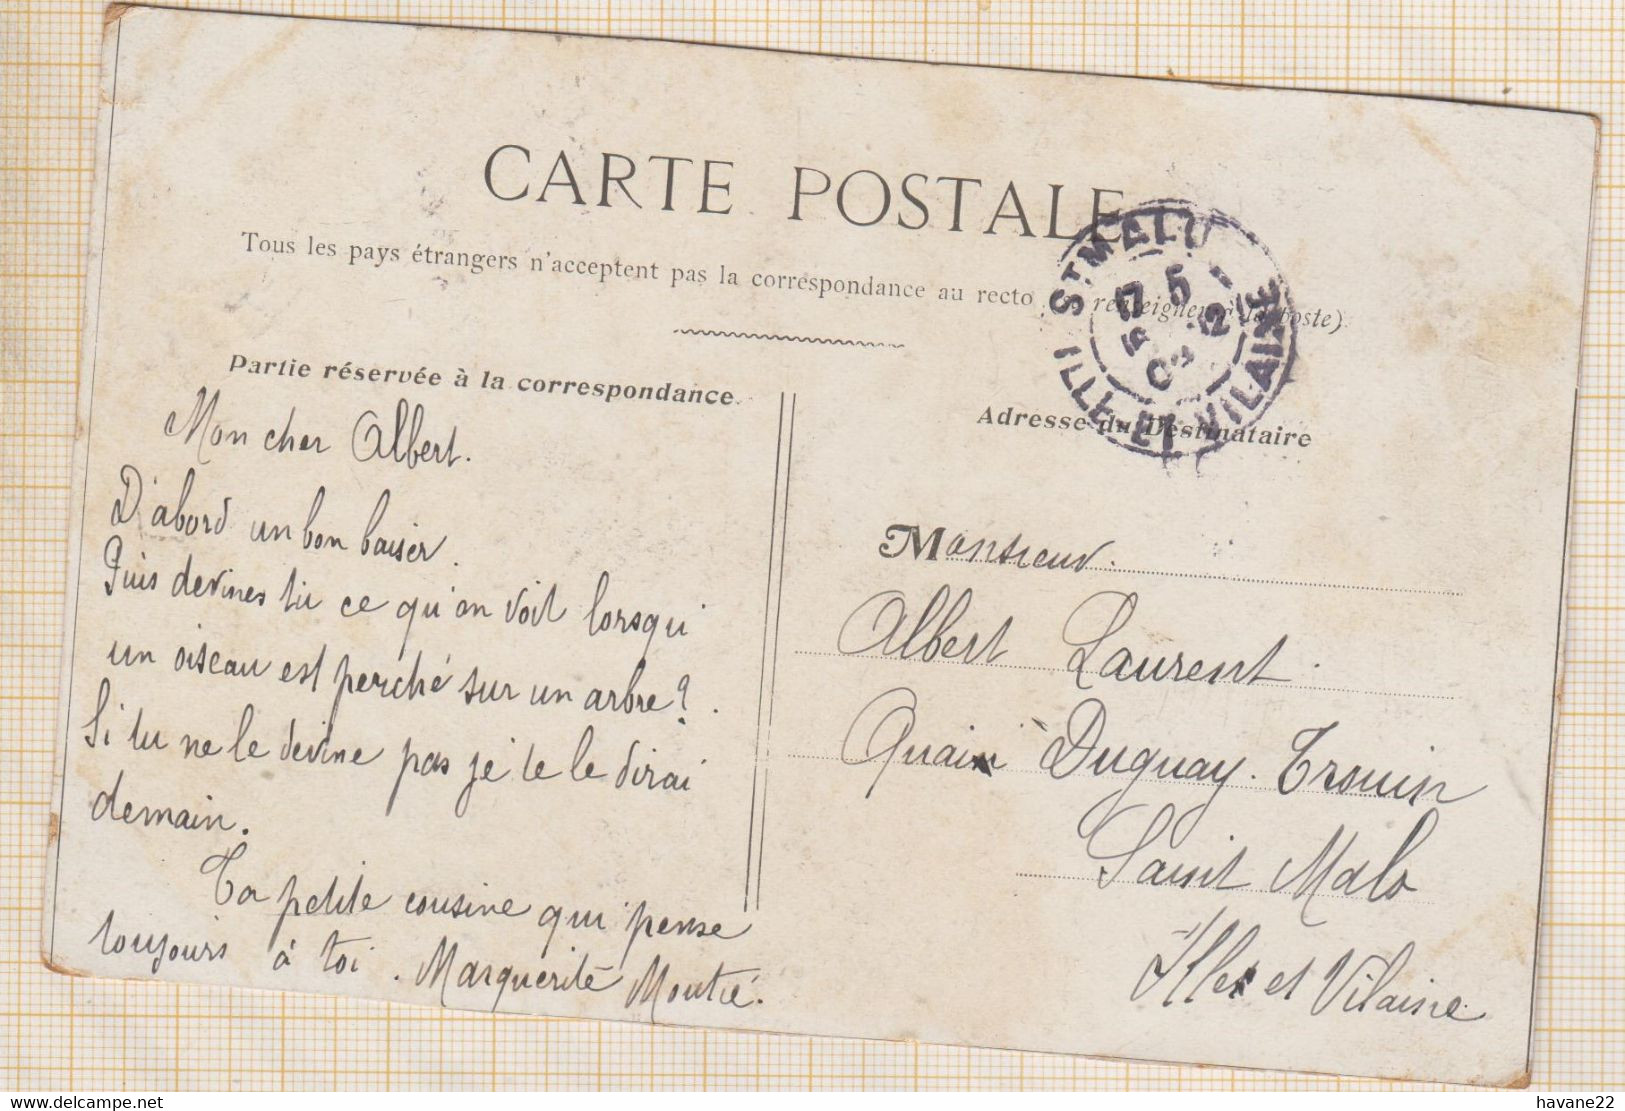 CARTE POSTALE
Tous les pays étrangers n'acceptent pas la correspondance au recto renseigner à la poste)
Partie réservée à la correspondance.
Mon cher Albert.
D'abord un bon baiser.
Puis devines tu ce qu'on voit lorsqu'
un oiseau est perché sur un arbre?.
Si tu ne le devine pas je te le dirai
demain.
Ta petite cousine qui pense
toujours à toi. Marguerite Moutié.
ST MALO
17 5
ILLE-ET-VILAINE
Adresse du Destinataire
Monsieur.
Albert Laurent.
Quai Duguay-Trouin
Saint Malo
Ille et Vilaine
havane22